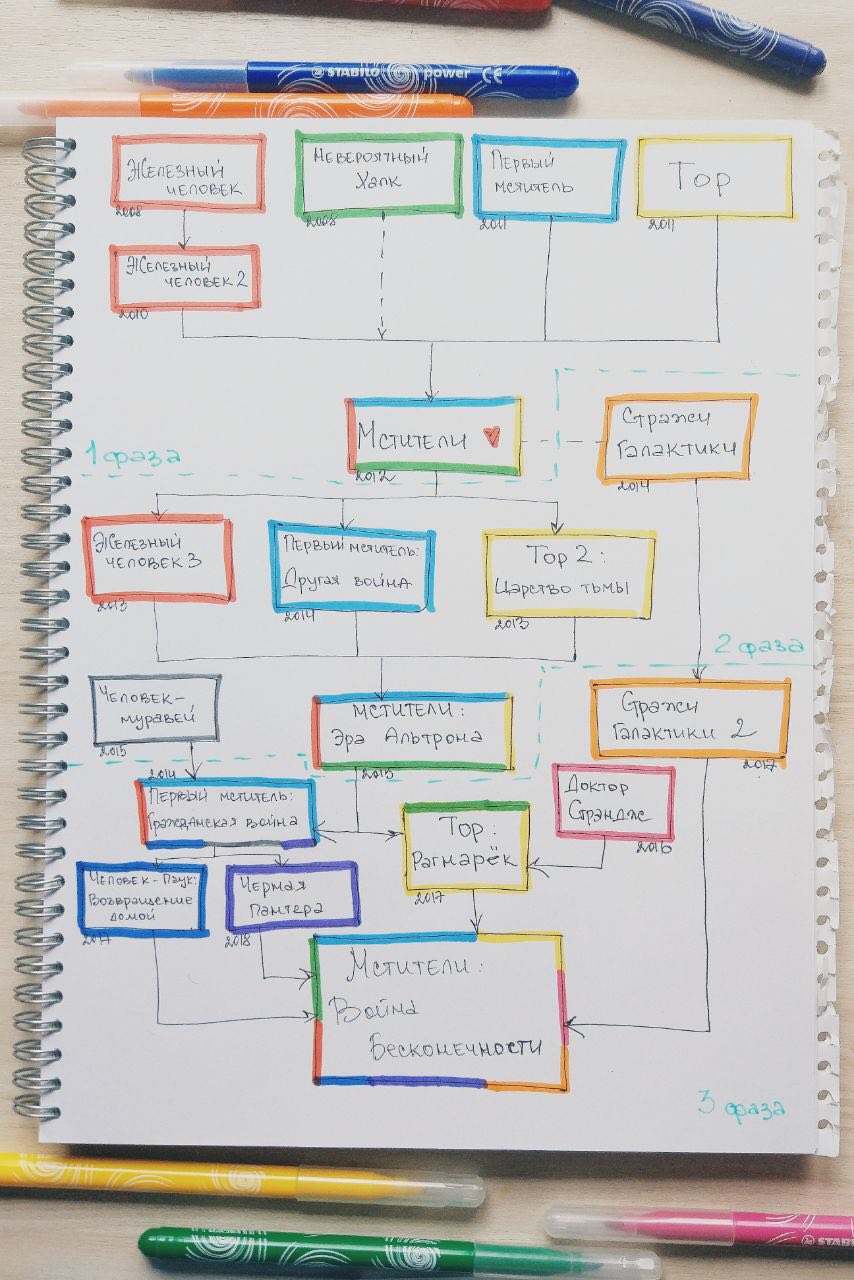 STABILO power CE
Железный
человек
2008
Невероятный
Халк
2008
Первый
мститель
2011
Тор
2011
Железный
человек 2
2010
Мстители
2012
Стражи
Галактики
2014
1 фаза
Железный
человек 3
2013
Первый мститель:
Другая война
2014
Тор 2:
Царство тьмы
2013
2 фаза
Человек-
муравей
2015
Мстители:
Эра Альтрона
2015
Стражи
Галактики 2
2017
2014
Первый мститель:
Гражданская война
Тор:
Рагнарёк
2017
Доктор
Стрэндж
2016
Человек-Паук:
Возвращение
домой
2017
Черная
Пантера
2018
Мстители:
Война
Бесконечности
3 фаза
STAB